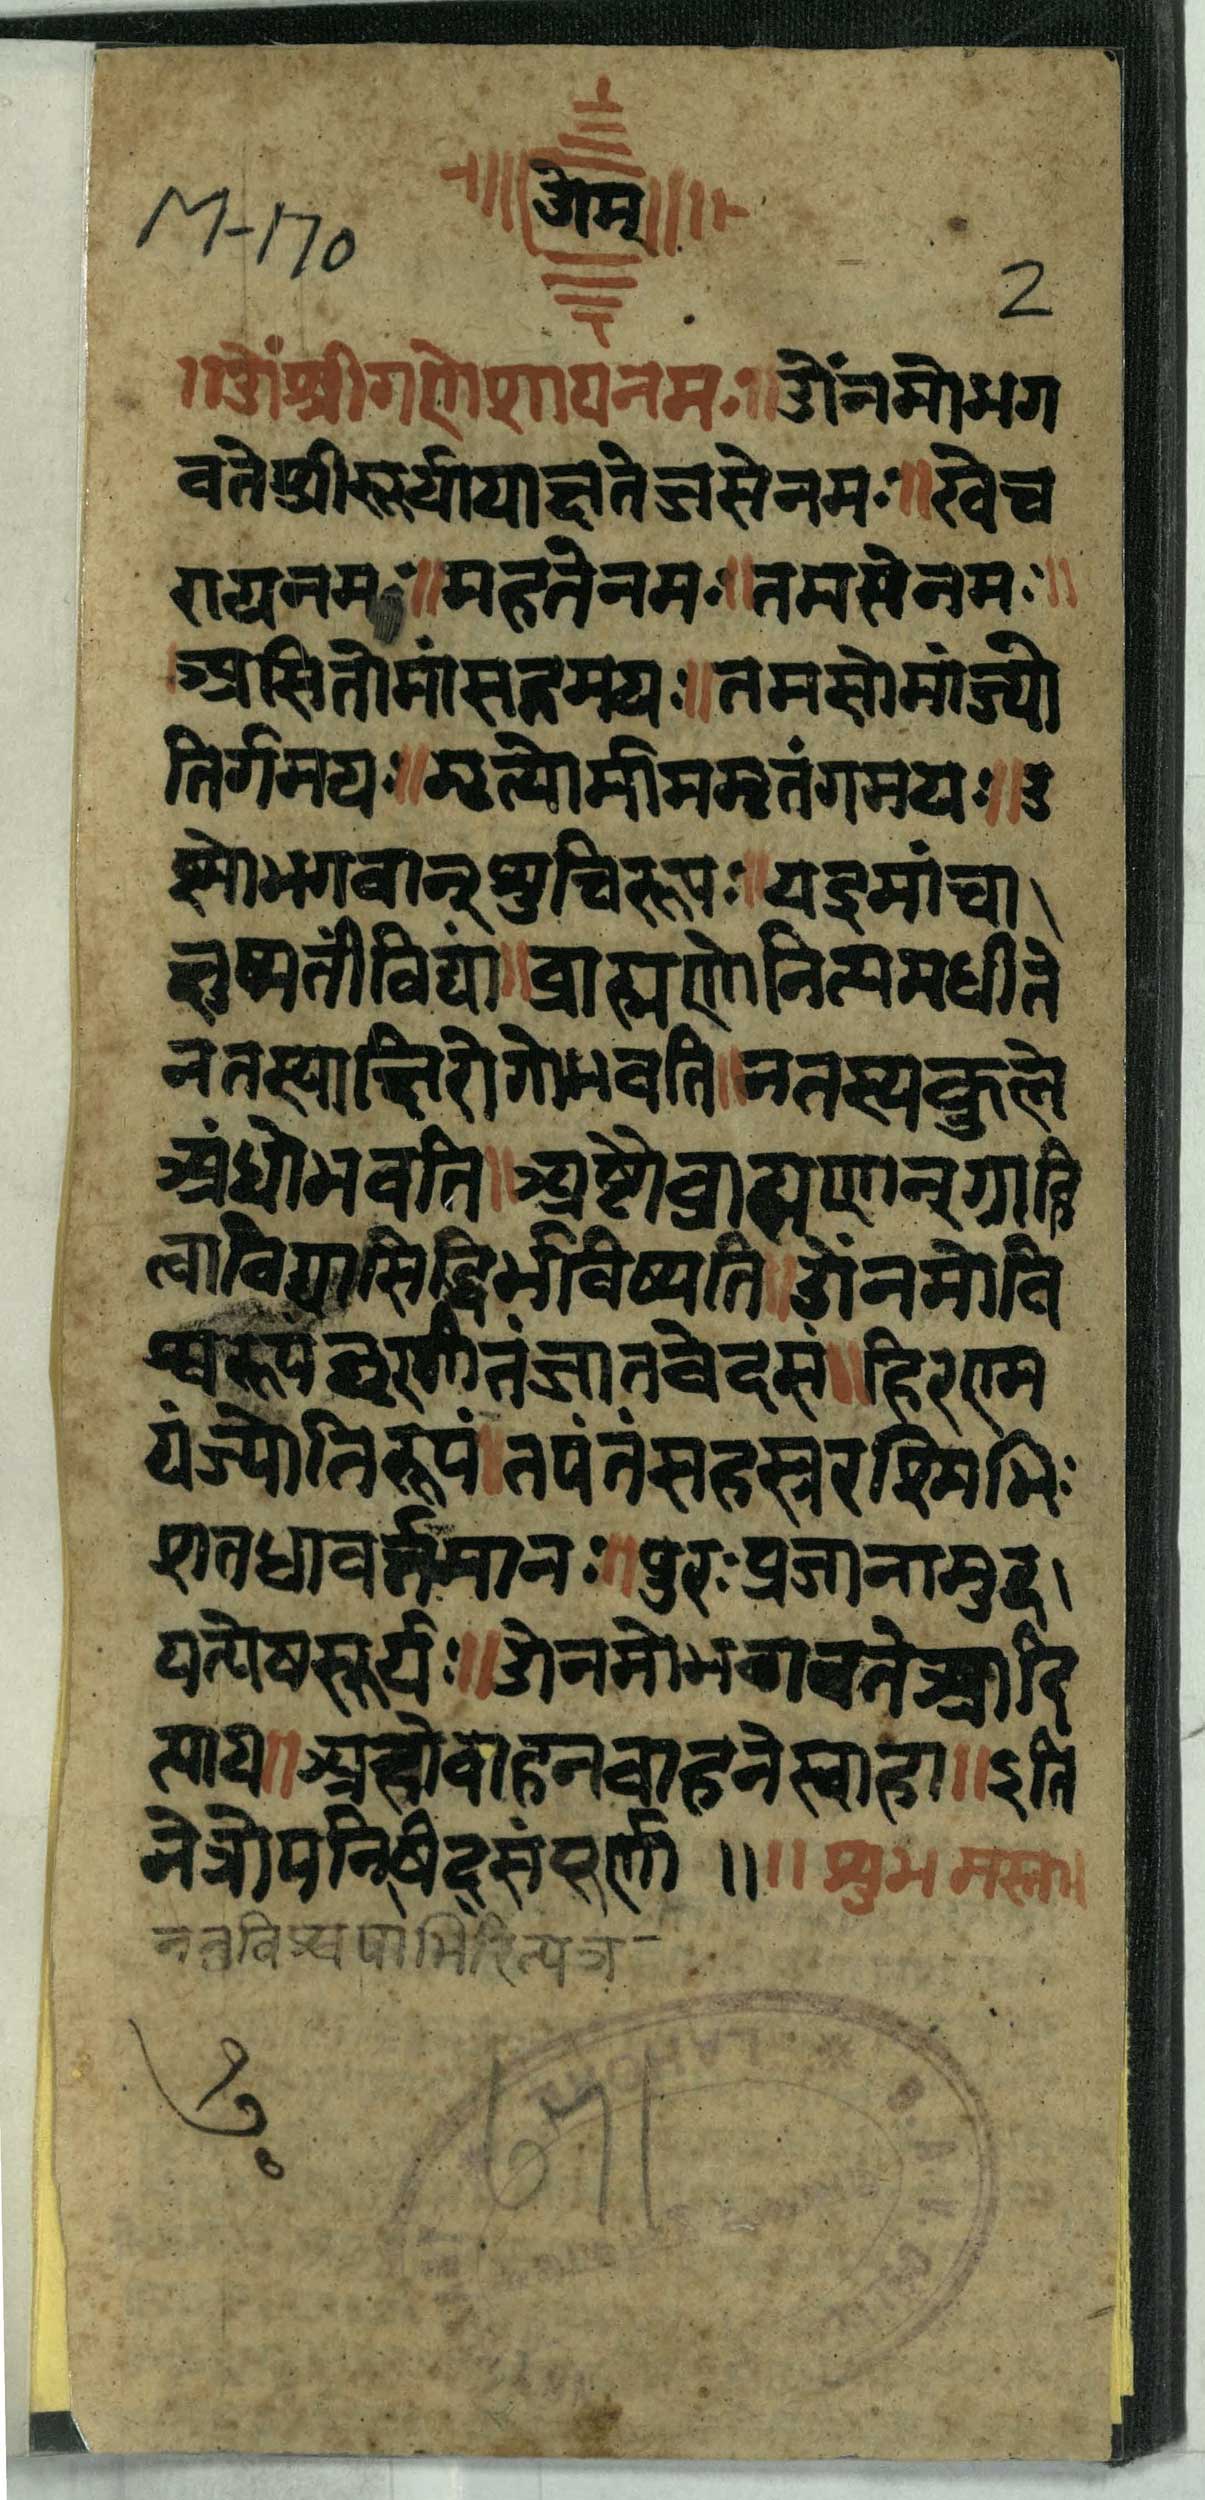 ओम्
M-170
2
॥ओं श्रीगणेशायनमः॥ओंनमोभग
वतेश्रीसूर्यायाक्षतेजसेनमः॥खेच
रायनमः॥महतेनमः॥तमसेनमः॥
असितोमांसद्गमयः॥तमसोमांज्यो
तिर्गमयः॥मृत्योर्मामममृतंगमयः॥उ
ष्णोभगवान्शुचिरूपः॥यइमांचा
क्षुष्मतींविद्यां॥ब्राह्मणोनित्यमधीते
नतस्याक्षिरोगोभवति॥नतस्यकुले
अंधोभवति॥अष्टौब्राह्मणान्ग्राहि
त्वाविद्यासिद्धिर्भविष्यति॥ओंनमोवि
श्वरूपंघृणीतंजातवेदसं॥हिरण्म
यंज्योतिरूपं॥तपंतंसहस्त्ररश्मिभिः
शतधावर्त्तमानः॥पुरःप्रजानामुद
यत्येषसूर्यः॥ओंनमोभगवतेआदि
त्याय॥अहोवाहनवाहनेस्वाहा॥इति
नेत्रोपनिषद्संपूर्णा॥॥शुभमस्तु॥
LAHORE
671